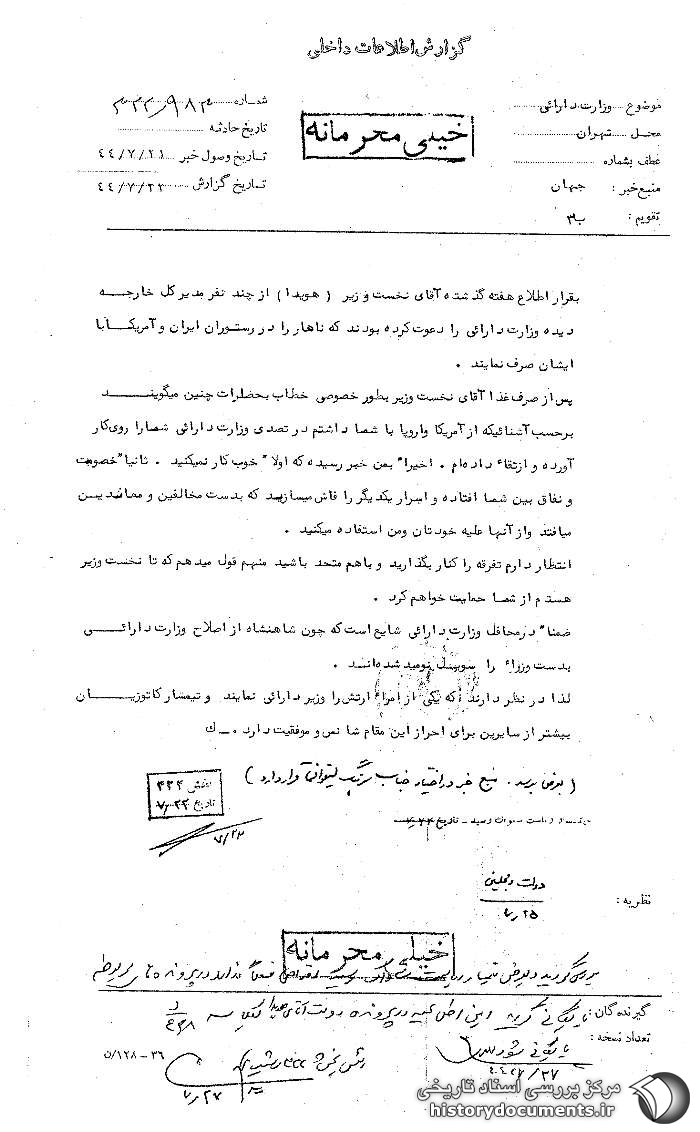 گزارش اطلاعات داخلی
موضوع وزارت دارائی
محل تهران
عطف بشماره
منبع خبر : جهان
تقویم : ب۳
خیلی محرمانه
شماره ۳۲۲/۹۸۳
تاریخ حادثه
تاریخ وصول خبر ۴۴/۷/۲۱
تاریخ گزارش ۴۴/۷/۲۲
بقرار اطلاع هفته گذشته آقای نخست وزیر ( هویدا ) از چند نفر مدیر کل خارجه
دیده وزارت دارائی را دعوت کرده بودند که ناهار را در رستوران ایران و آمریکا با
ایشان صرف نمایند .
پس از صرف غذا آقای نخست وزیر بطور خصوصی خطاب بحضرات چنین میگویند
برحسب آشنائیکه از آمریکا واروپا با شما داشتم در تصدی وزارت دارائی شمارا روی کار
آورده و ارتقاء داده‌ام . اخیرا" بمن خبر رسیده که اولا" خوب کار نمیکنید . ثانیا" خصومت
و نفاق بین شما افتاده و اسرار یکدیگر را فاش میسازید که بدست مخالفین و معاندین
میافتد واز آنها علیه خودتان ومن استفاده میکنید .
انتظار دارم تفرقه را کنار بگذارید و باهم متحد باشید منهم قول میدهم که تا نخست وزیر
هستم از شما حمایت خواهم کرد .
ضمنا" در محافل وزارت دارائی شایع است که چون شاهنشاه از اصلاح وزارت دارائی
بدست وزراء را سویینل نومید شده‌اند .
لذا در نظر دارند که یکی از امراء ارتش را وزیر دارائی نمایند و تیمسار کاتوزیان
بیشتر از سایرین برای احراز این مقام شانس و موفقیت دارد . ـ ك
( بعرض برسد . منبع خبر در اختیار جناب سرهنگ قرار دارد )
بخش ۳۲۲
تاریخ ۷/۲۲
۷/۲۳
نظریه :
۷/۲۵
خیلی محرمانه
گیرندگان :
تعداد نسخه :
بایگانی شود
۷/۲۷
۷/۲۷
۵/۱۲۸-۳۶
مرکز بررسی اسناد تاریخی
historydocuments.ir